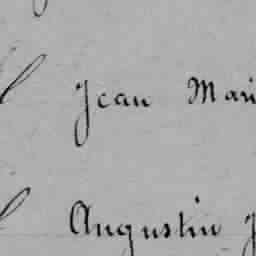 Jean Mari
Augustin J